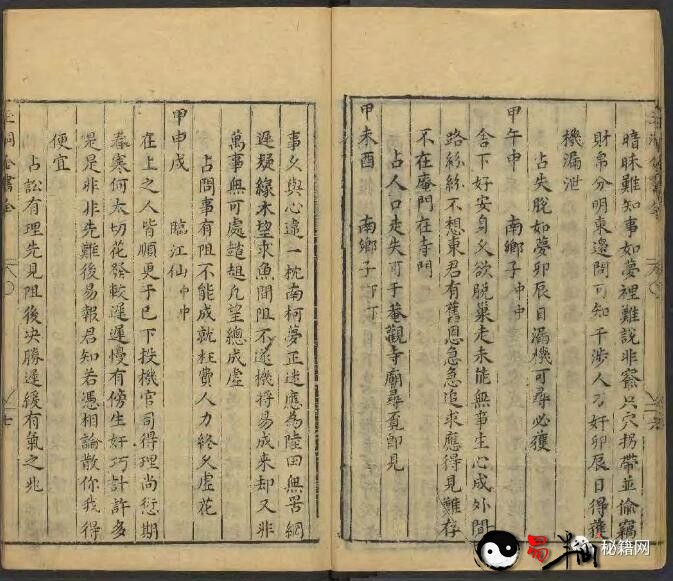 暗昧難知事如夢裡難說非察只穴拐帶並偷竊
財帛分明東邊問可知干涉人刁奸卯辰日得獲
機漏泄
占失脫如夢卯辰日漏機可尋必獲
甲午申 南鄉子中中
舍下好安身久欲脫巢走未能無事生心成外間
路絲絲不想東君有舊恩急急追求應得見難存
不在庵門在寺門
占人口走失可于菴觀寺廟尋覓即見
甲未酉 南鄉子下下
事久與心違一枕南柯夢正迷應為陸田無罟網
遲疑緣木望求魚間阻不遂機將易成来却又非
萬事無可處趦趄凡望總成虛
占問事有阻不能成就枉費人力終久虛花
甲申戌 臨江仙中中
在上之人皆順更于巳下投機官司得理尚愆期
春寒何太切花發較遲遲慢有傍生奸巧計許多
是是非非先難後易報君知若憑相論散你我得
便宜
占訟有理先見阻後决勝遲緩有氣之兆
七
秘籍网